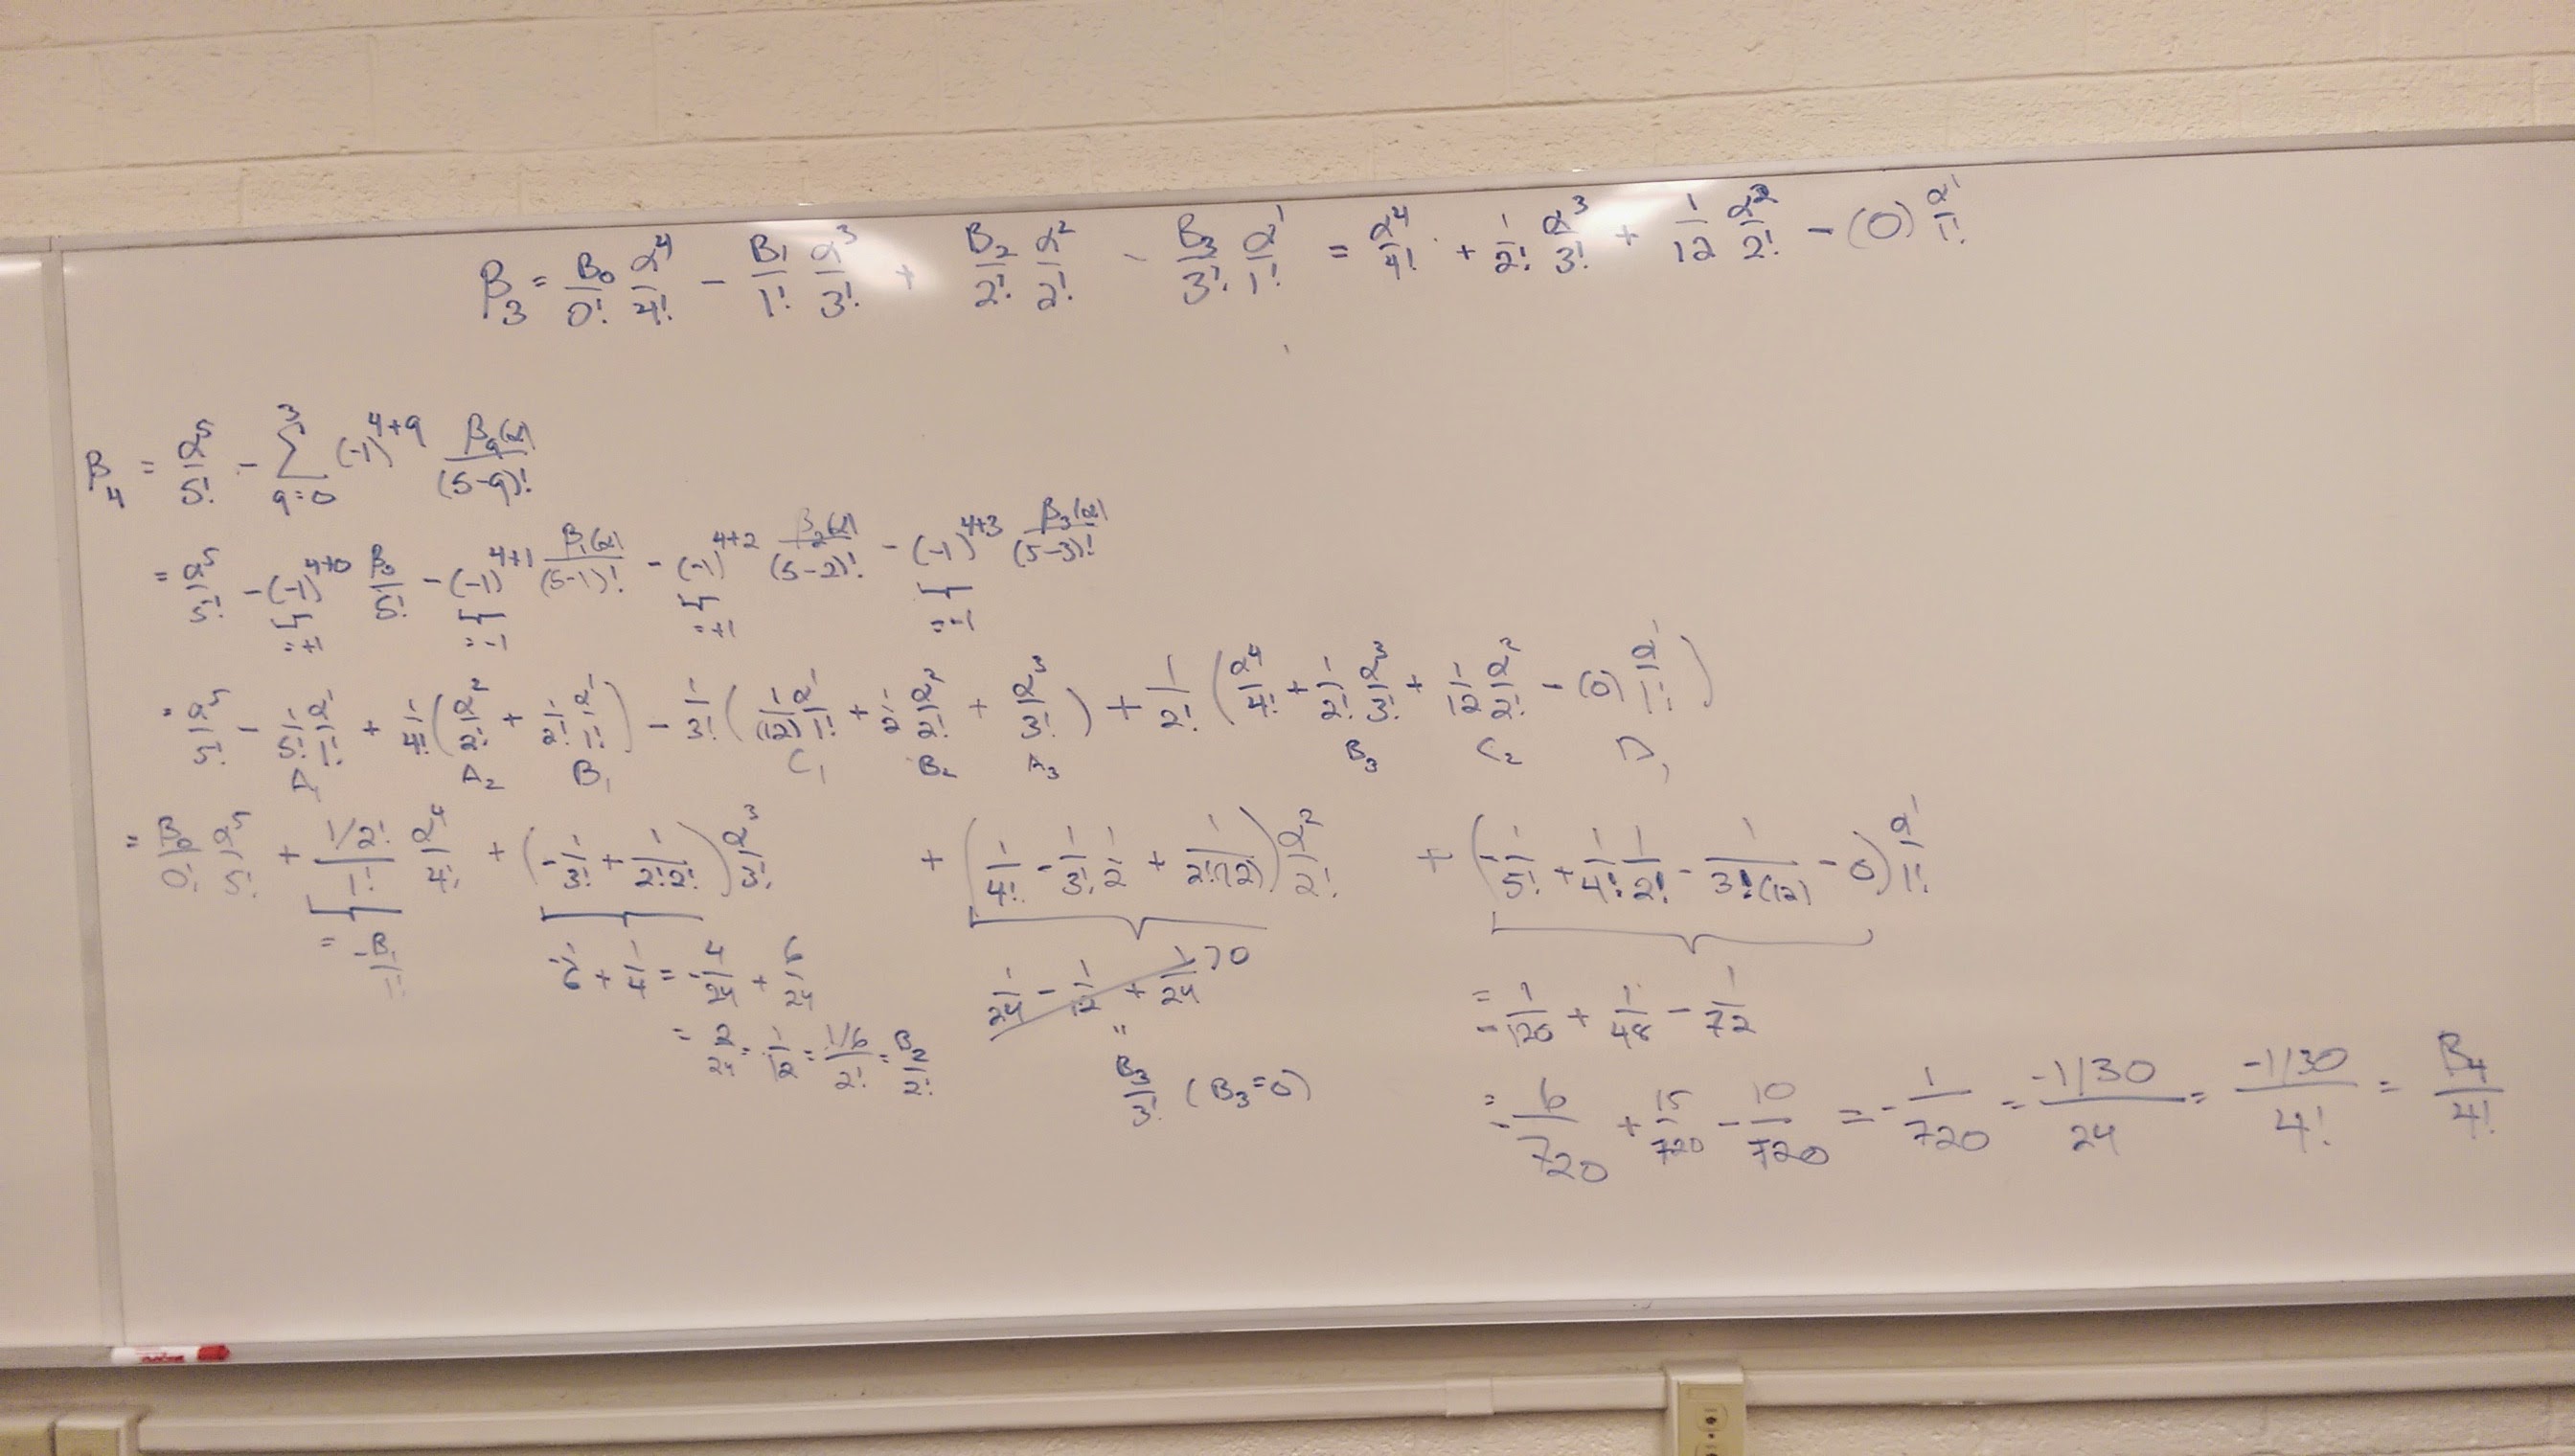 β₃ = B₀/0! α⁴/4! - B₁/1! α³/3! + B₂/2! α²/2! - B₃/3! α¹/1! = α⁴/4! + 1/2! α³/3! + 1/12 α²/2! - (0) α¹/1!
β₄ = α⁵/5! - ∑_{q=0}^{3} (-1)^{4+q} β_q(α)/(5-q)!
= α⁵/5! - (-1)^{4+0} β₀/5! - (-1)^{4+1} β₁(α)/(5-1)! - (-1)^{4+2} β₂(α)/(5-2)! - (-1)^{4+3} β₃(α)/(5-3)!
=+1 =-1 =+1 =-1
= α⁵/5! - 1/5! α¹/1! + 1/4! (α²/2! + 1/2! α¹/1!) - 1/3! (1/(12) α¹/1! + 1/2 α²/2! + α³/3!) + 1/2! (α⁴/4! + 1/2! α³/3! + 1/12 α²/2! - (0) α¹/1!)
A₁ A₂ B₁ C₁ B₂ A₃ B₃ C₂ D₁
= B₀/0! α⁵/5! + (1/2!)/1! α⁴/4! + (-1/3! + 1/2!2!) α³/3! + (1/4! - 1/3! 1/2 + 1/2!(12)) α²/2! + (-1/5! + 1/4! 1/2! - 1/3!(12) - 0) α¹/1!
= -B₁/1!
-1/6 + 1/4 = -4/24 + 6/24
= 2/24 = 1/12 = (1/6)/2! = B₂/2!
1/24 - 1/12 + 1/24 0
" B₃/3! (B₃=0)
= -1/120 + 1/48 - 1/72
= -6/720 + 15/720 - 10/720 = -1/720 = (-1/30)/24 = (-1/30)/4! = B₄/4!